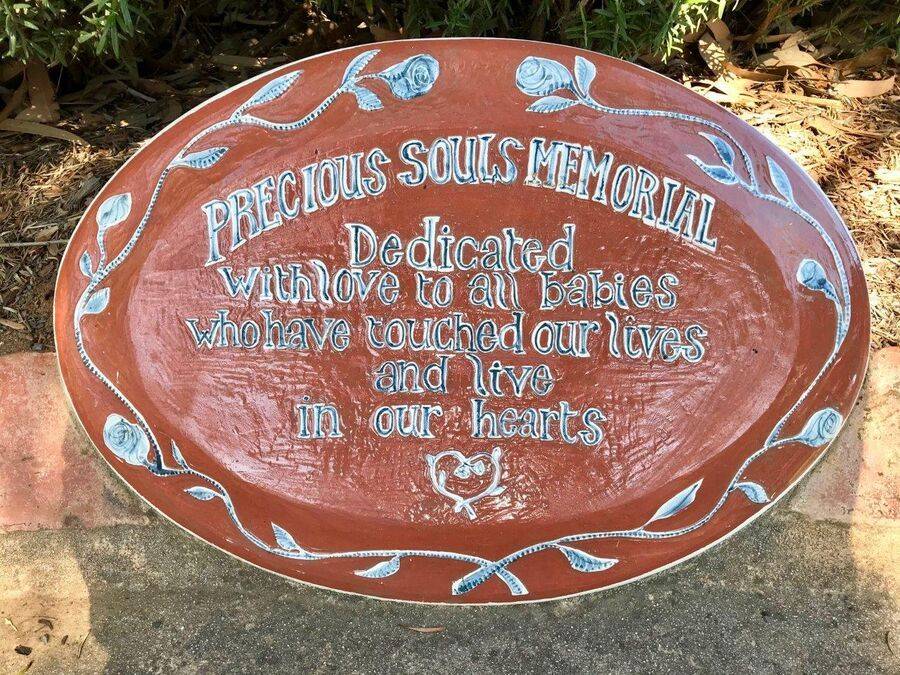 PRECIOUS SOULS MEMORIAL
Dedicated
with love to all babies
who have touched our lives
and live
in our hearts